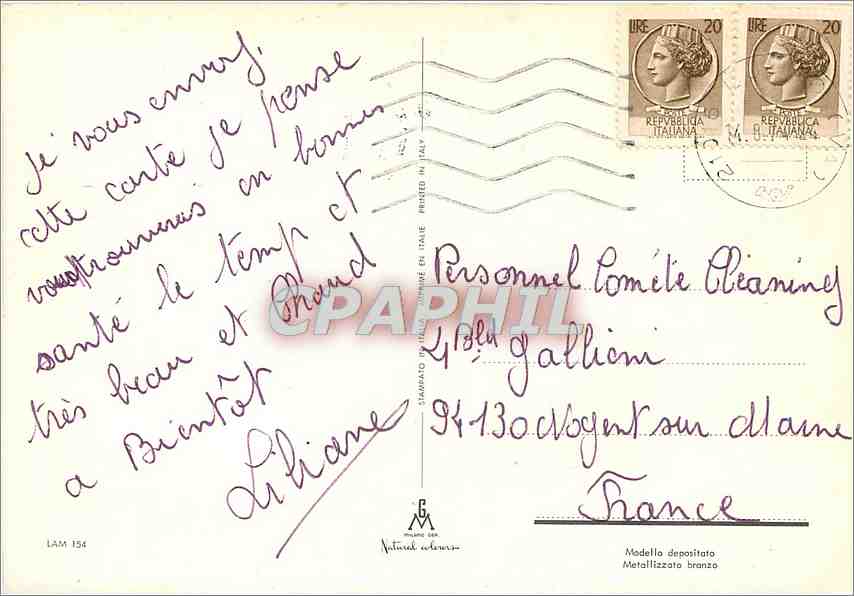 je vous envoy.
cette carte je pense
vous trouverais en bonnes
santé le temp et
très beau et Chaud
a Bientôt
Liliane
LAM 154
PRINTED IN ITALY
IMPRIMÉ EN ITALIE
STAMPATO IN ITALIA
GM
MILANO DEP.
Natural colorers
LIRE 20
POSTE
REPVBBLICA
ITALIANA
LIRE 20
POSTE
REPVBBLICA
ITALIANA
Personnel Comété Cléaning
4 Bld Gallieni
94130 Nogent sur Marne
France
Modello depositato
Metallizzato bronzo
CPAPHIL